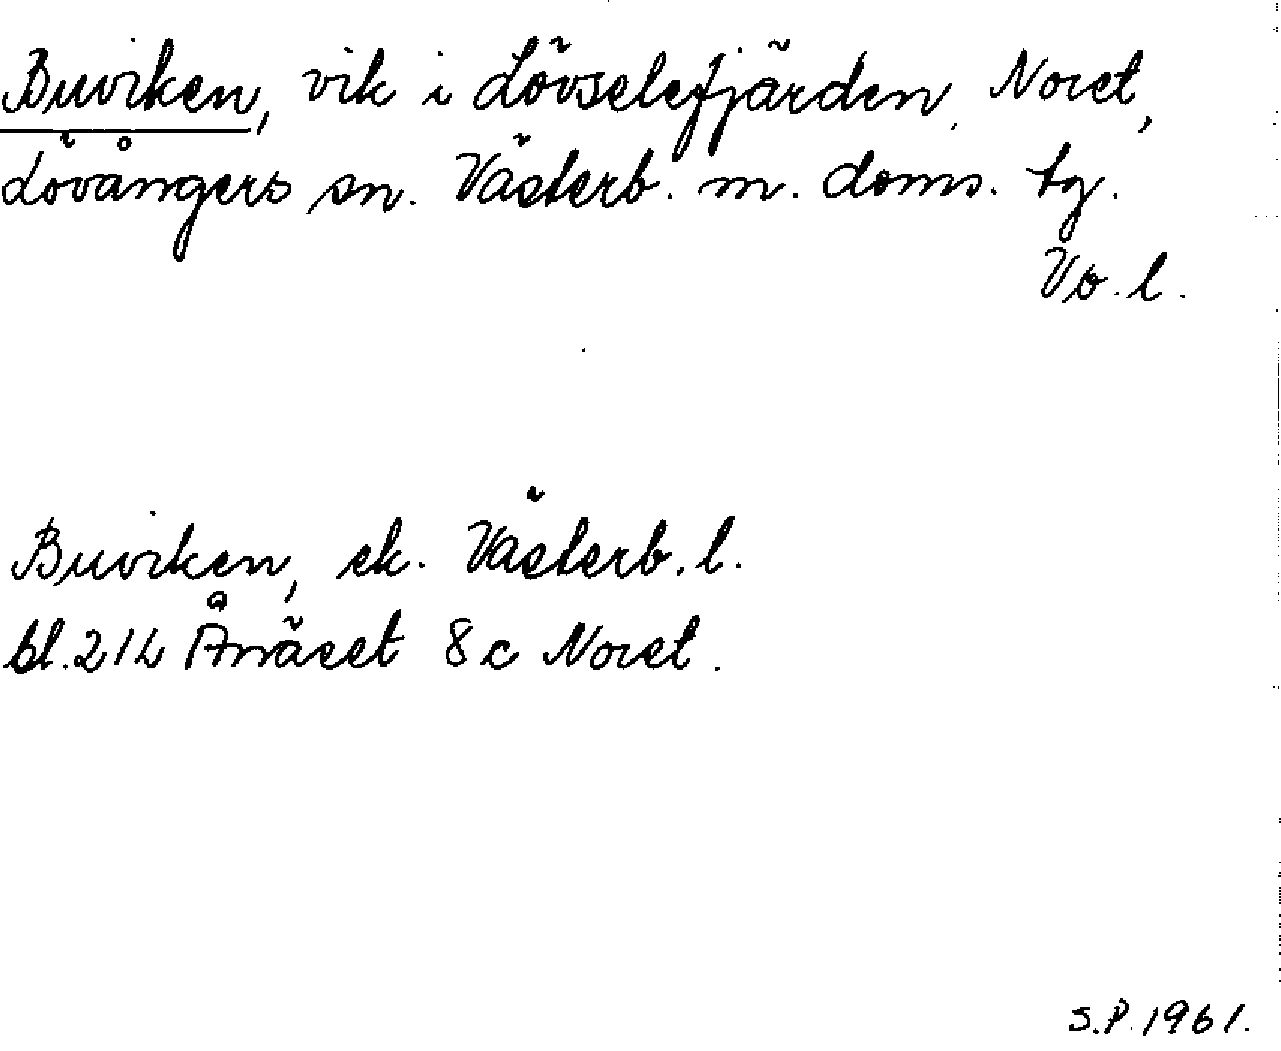 Buviken, vik i Lövselefjärden, Noret,
Lövångers sn. Västerb. m. doms. tg.
Vb. l.
Buviken, ek. Västerb. l.
bl. 21L Ånäset 8c Noret.
S.P. 1961.